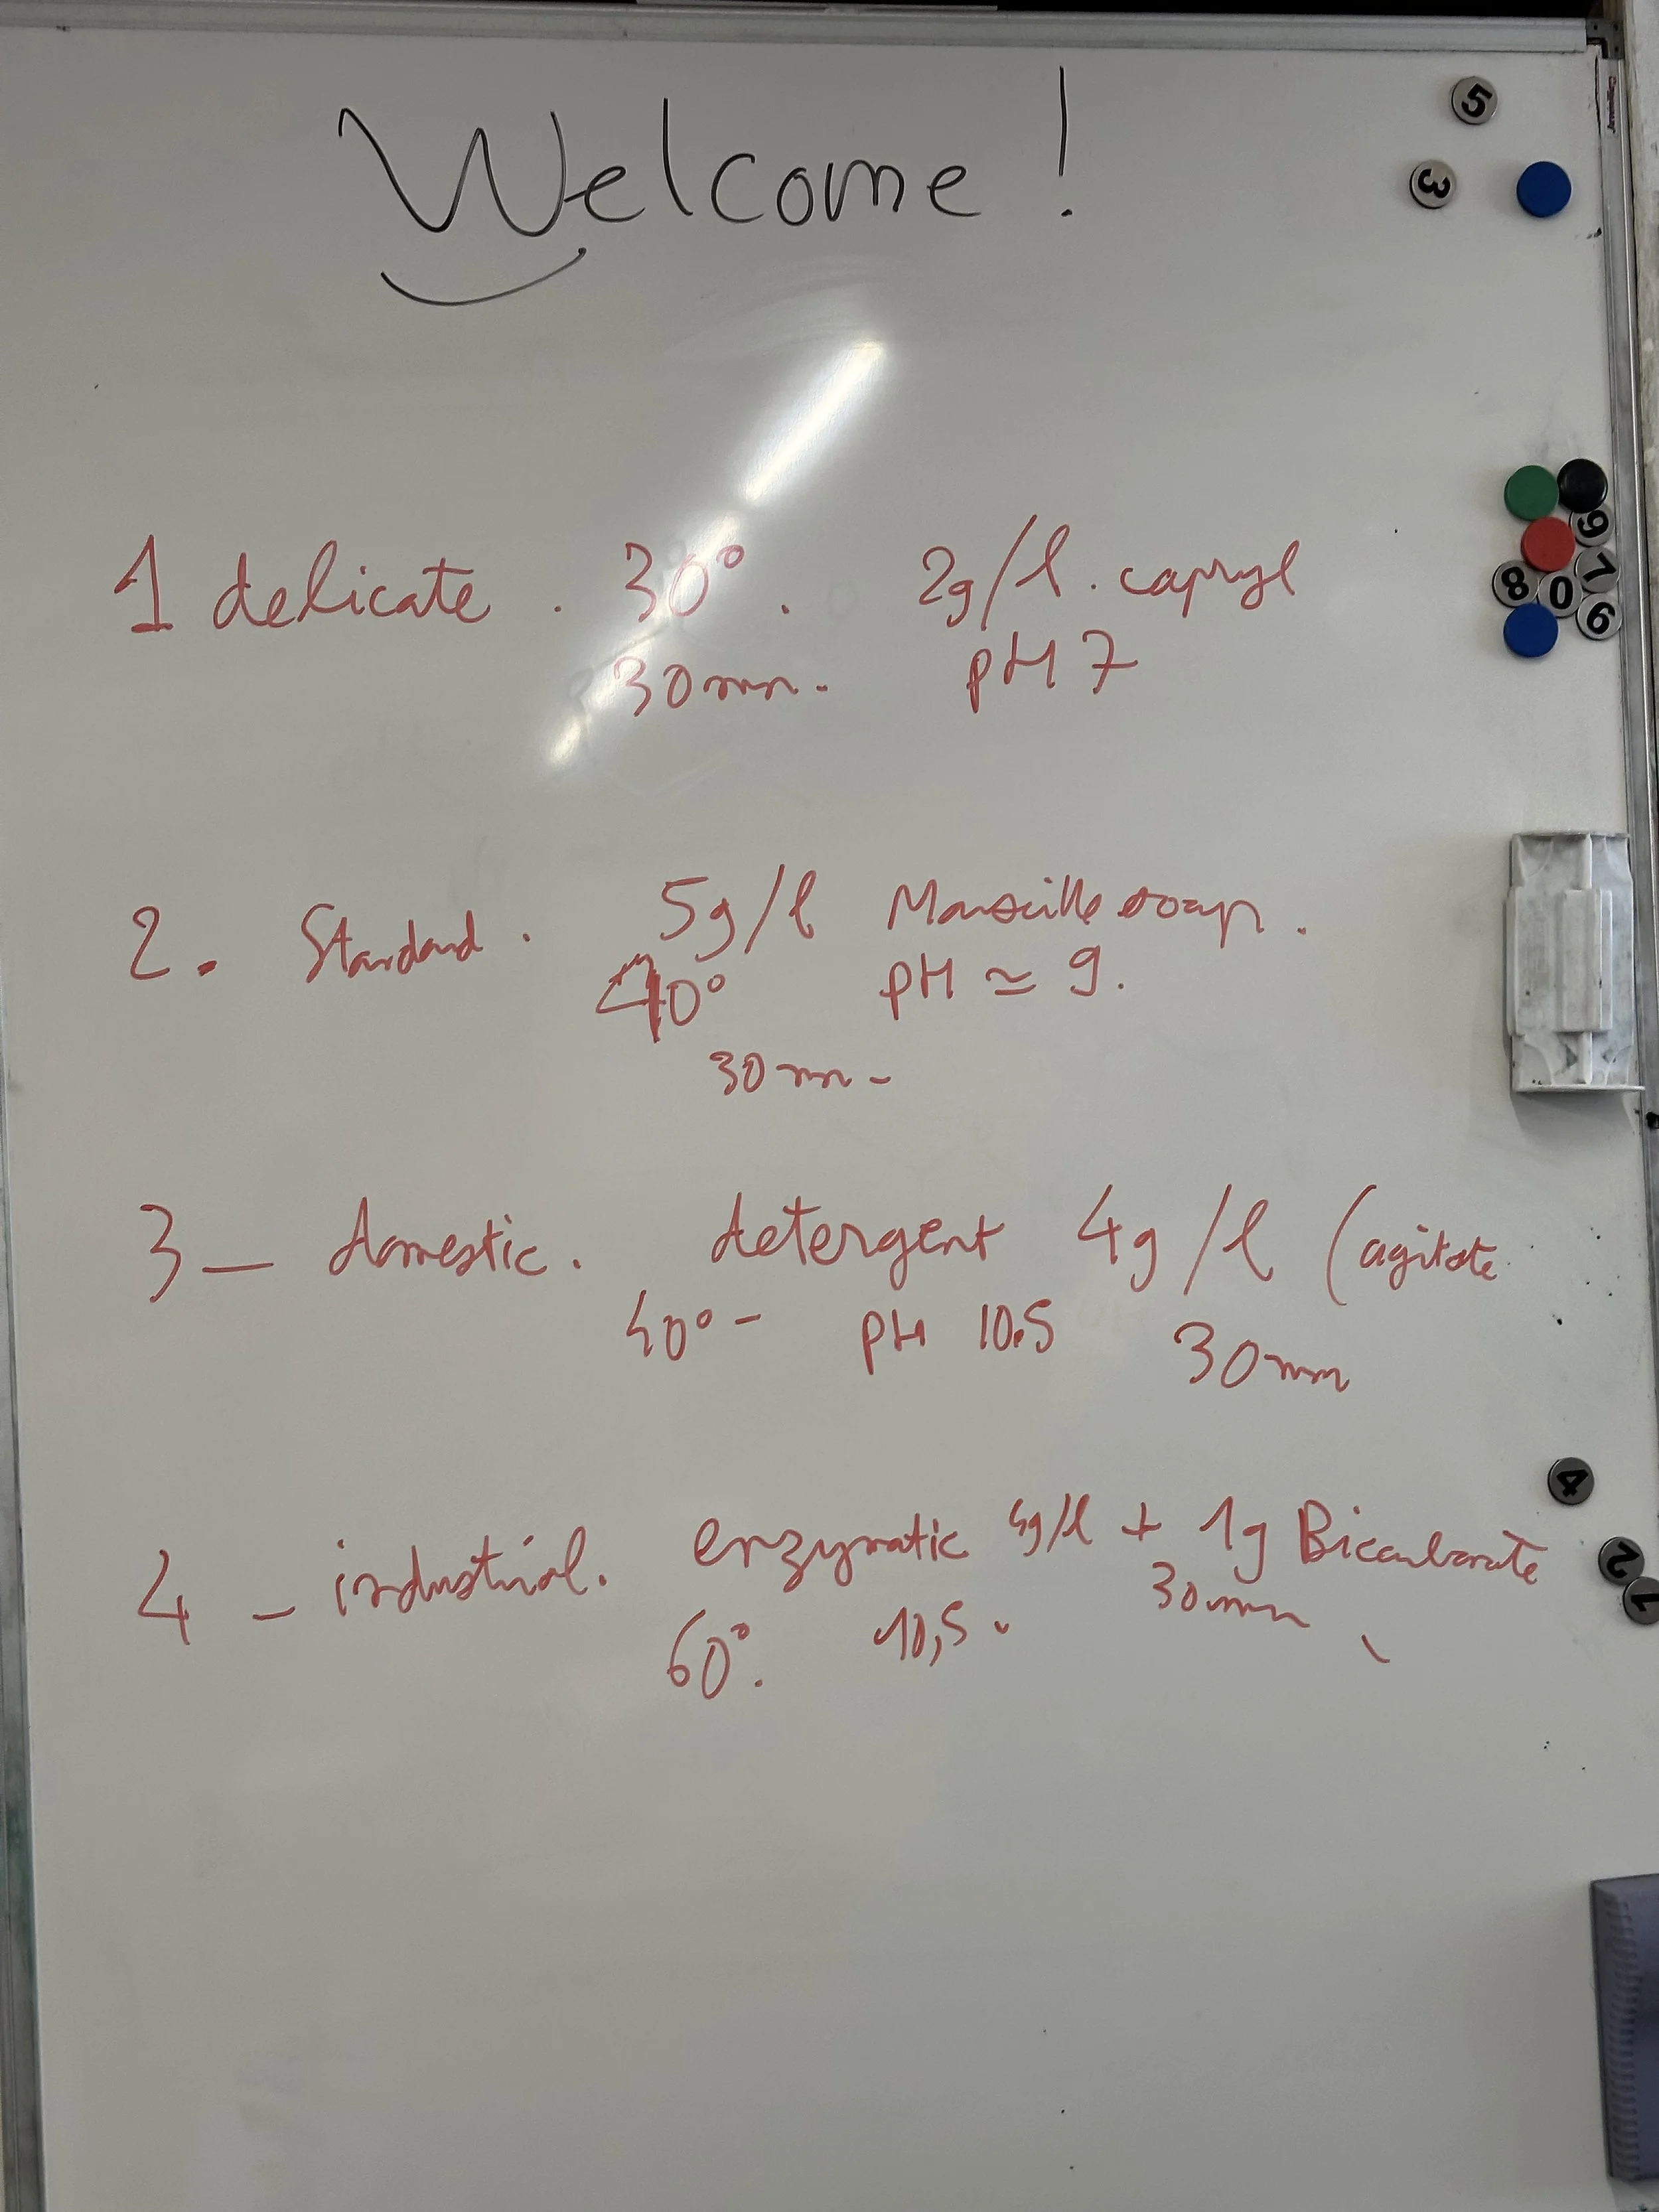 Welcome !
1 delicate . 30° . 2g/l . capryl
30mn . pH 7
2. Standard . 5g/l Marseille soap .
40° pH ≃ 9.
30 mn -
3 _ domestic . detergent 4g/l (agitate
40° - pH 10.5 30mn
4 - industrial. enzymatic 4g/l + 1g Bicarbonate
60° . 10,5 . 30mn
5
3
9
7
8
0
6
4
2
1